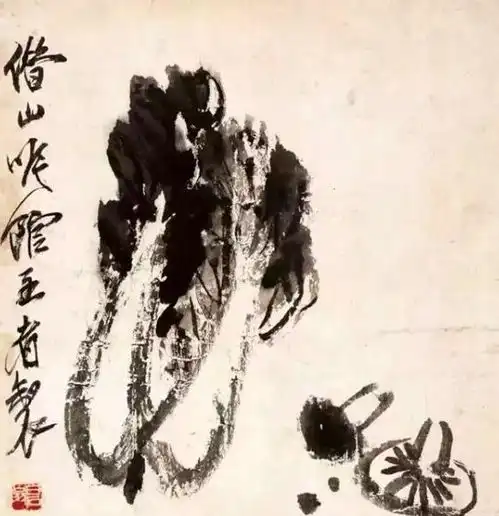 借山吟館主者製